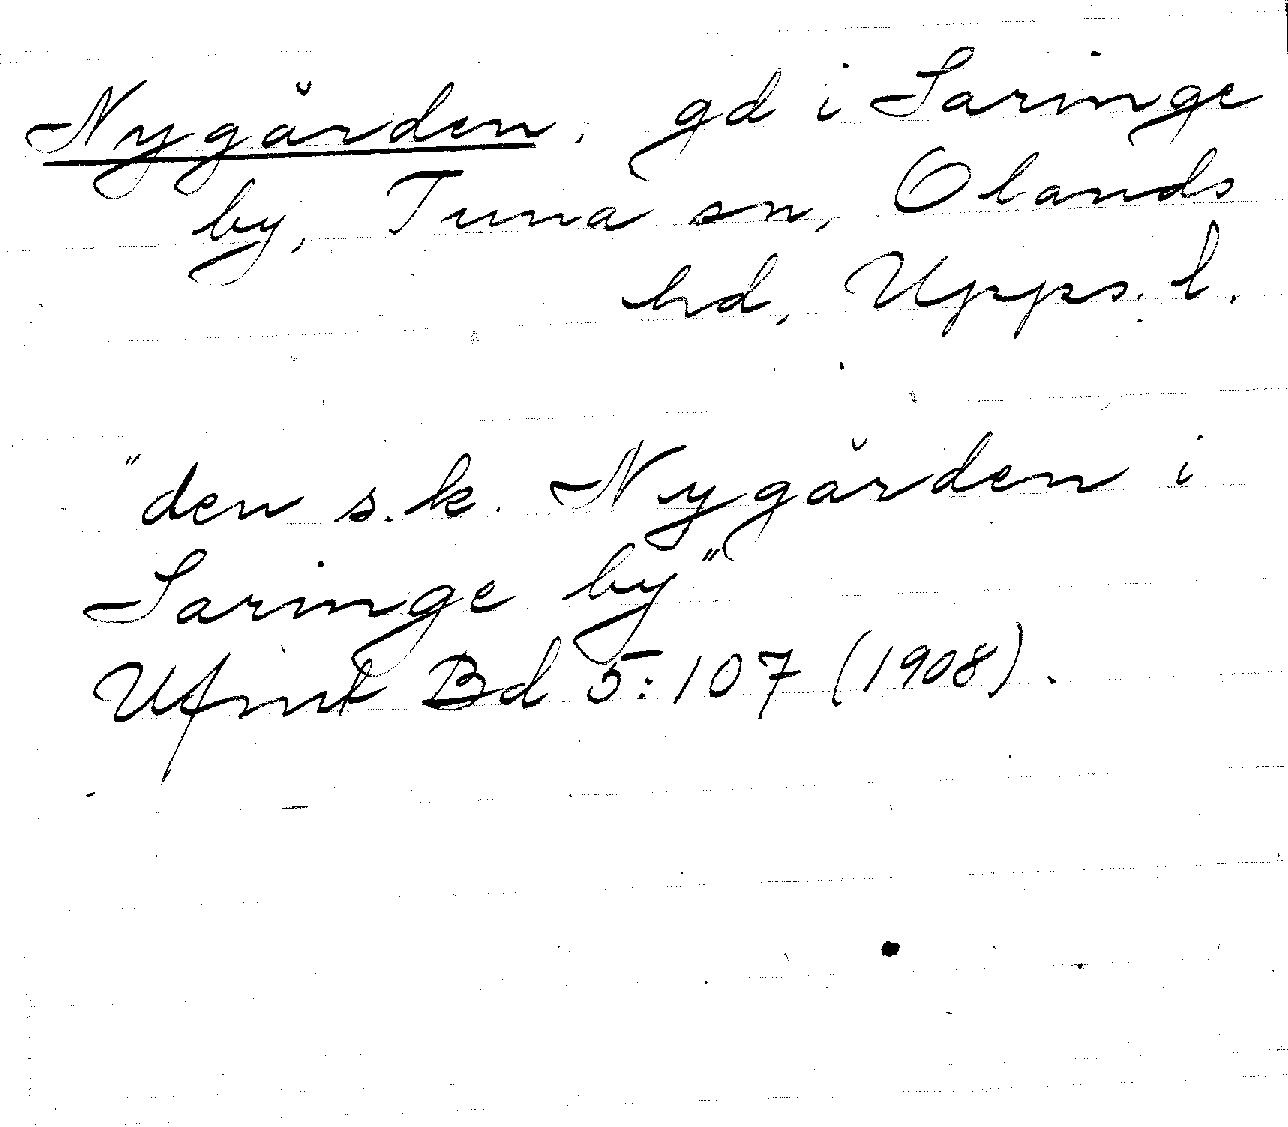 Nygården, gd i Saringe
by, Tuna sn, Olands
hd, Upps. l.
"den s.k. Nygården i
Saringe by"
Ufmt Bd 5:107 (1908).